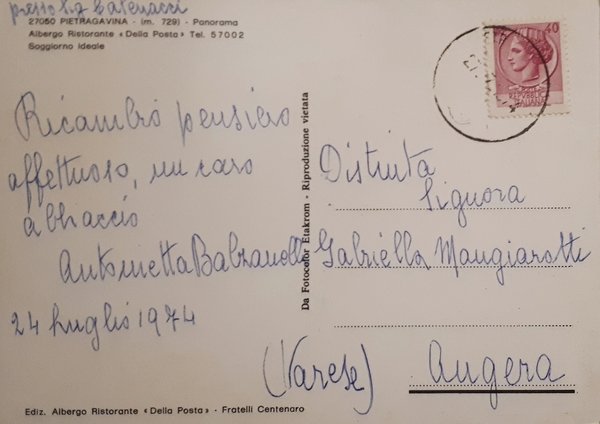 presso Sig. Catenacci
27050 PIETRAGAVINA - (m. 729) - Panorama
Albergo Ristorante «Della Posta» Tel. 57002
Soggiorno Ideale
Ricambio pensiero
affettuoso, un caro
abbraccio
Antonietta Balzanelli
24 luglio 1974
Ediz. Albergo Ristorante «Della Posta» - Fratelli Centenaro
Da Fotocolor Etakrom - Riproduzione vietata
40
REPUBBLICA
ITALIANA
Distinta
Signora
Gabriella Mangiarotti
(Varese) Angera